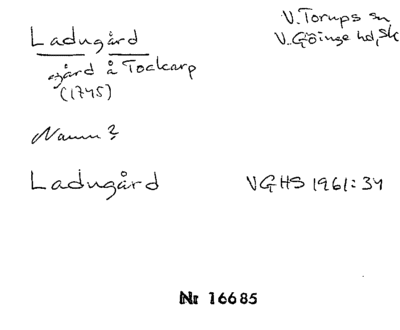 Ladugård
V. Torups sn
V. Göinge hd, Sk
gård å Tockarp
(1745)
Namn?
Ladugård
VGHS 1961: 34
Nr 16685